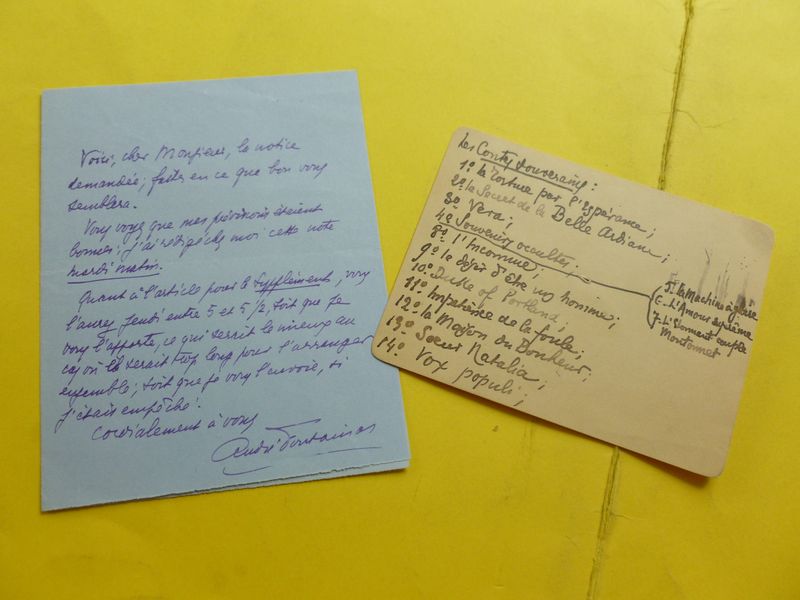 Voici, cher Monsieur, la notice
demandée; faites en ce que bon vous
semblera.
Vous voyez que mes prévisions étaient
bonnes; j'ai rédigé chez moi cette note
mardi matin.
Quant à l'article pour le Supplément, vous
l'aurez Jeudi entre 5 et 5 1/2, soit que je
vous l'apporte, ce qui serait le mieux au
cas où il serait trop long pour l'arranger
ensemble; soit que je vous l'envoie, si
j'étais empêché.
Cordialement à vous
André Fontainas
Les Contes souverains:
1º la Torture par l'Espérance;
2º le Secret de la Belle Ardiane;
3º Vera;
4º Souvenirs occultes;
5- La Machine à gloire
6- L'Amour suprême
7- L'Etonnant couple
Montonnet
8º l'Inconnue;
9º le désir d'être un homme;
10º Duke of Portland;
11º Impatience de la foule;
12º la Maison du Bonheur;
13º Sœur Natalia;
14º Vox populi;